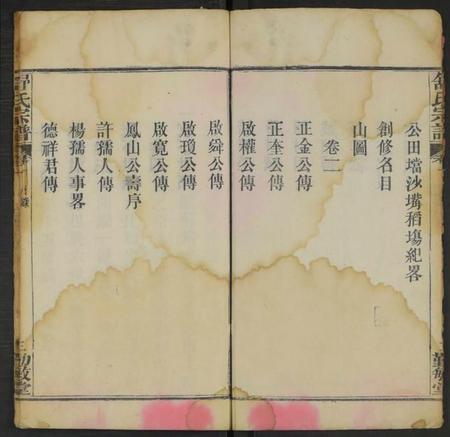 舒氏宗譜
公田壋沙塆稻塲紀畧
創修名目
山圖
卷二
正金公傳
正奎公傳
啟權公傳
啟舜公傳
啟瓊公傳
啟寬公傳
鳳山公壽序
許孺人傳
楊孺人事畧
德祥君傳
舒氏宗譜